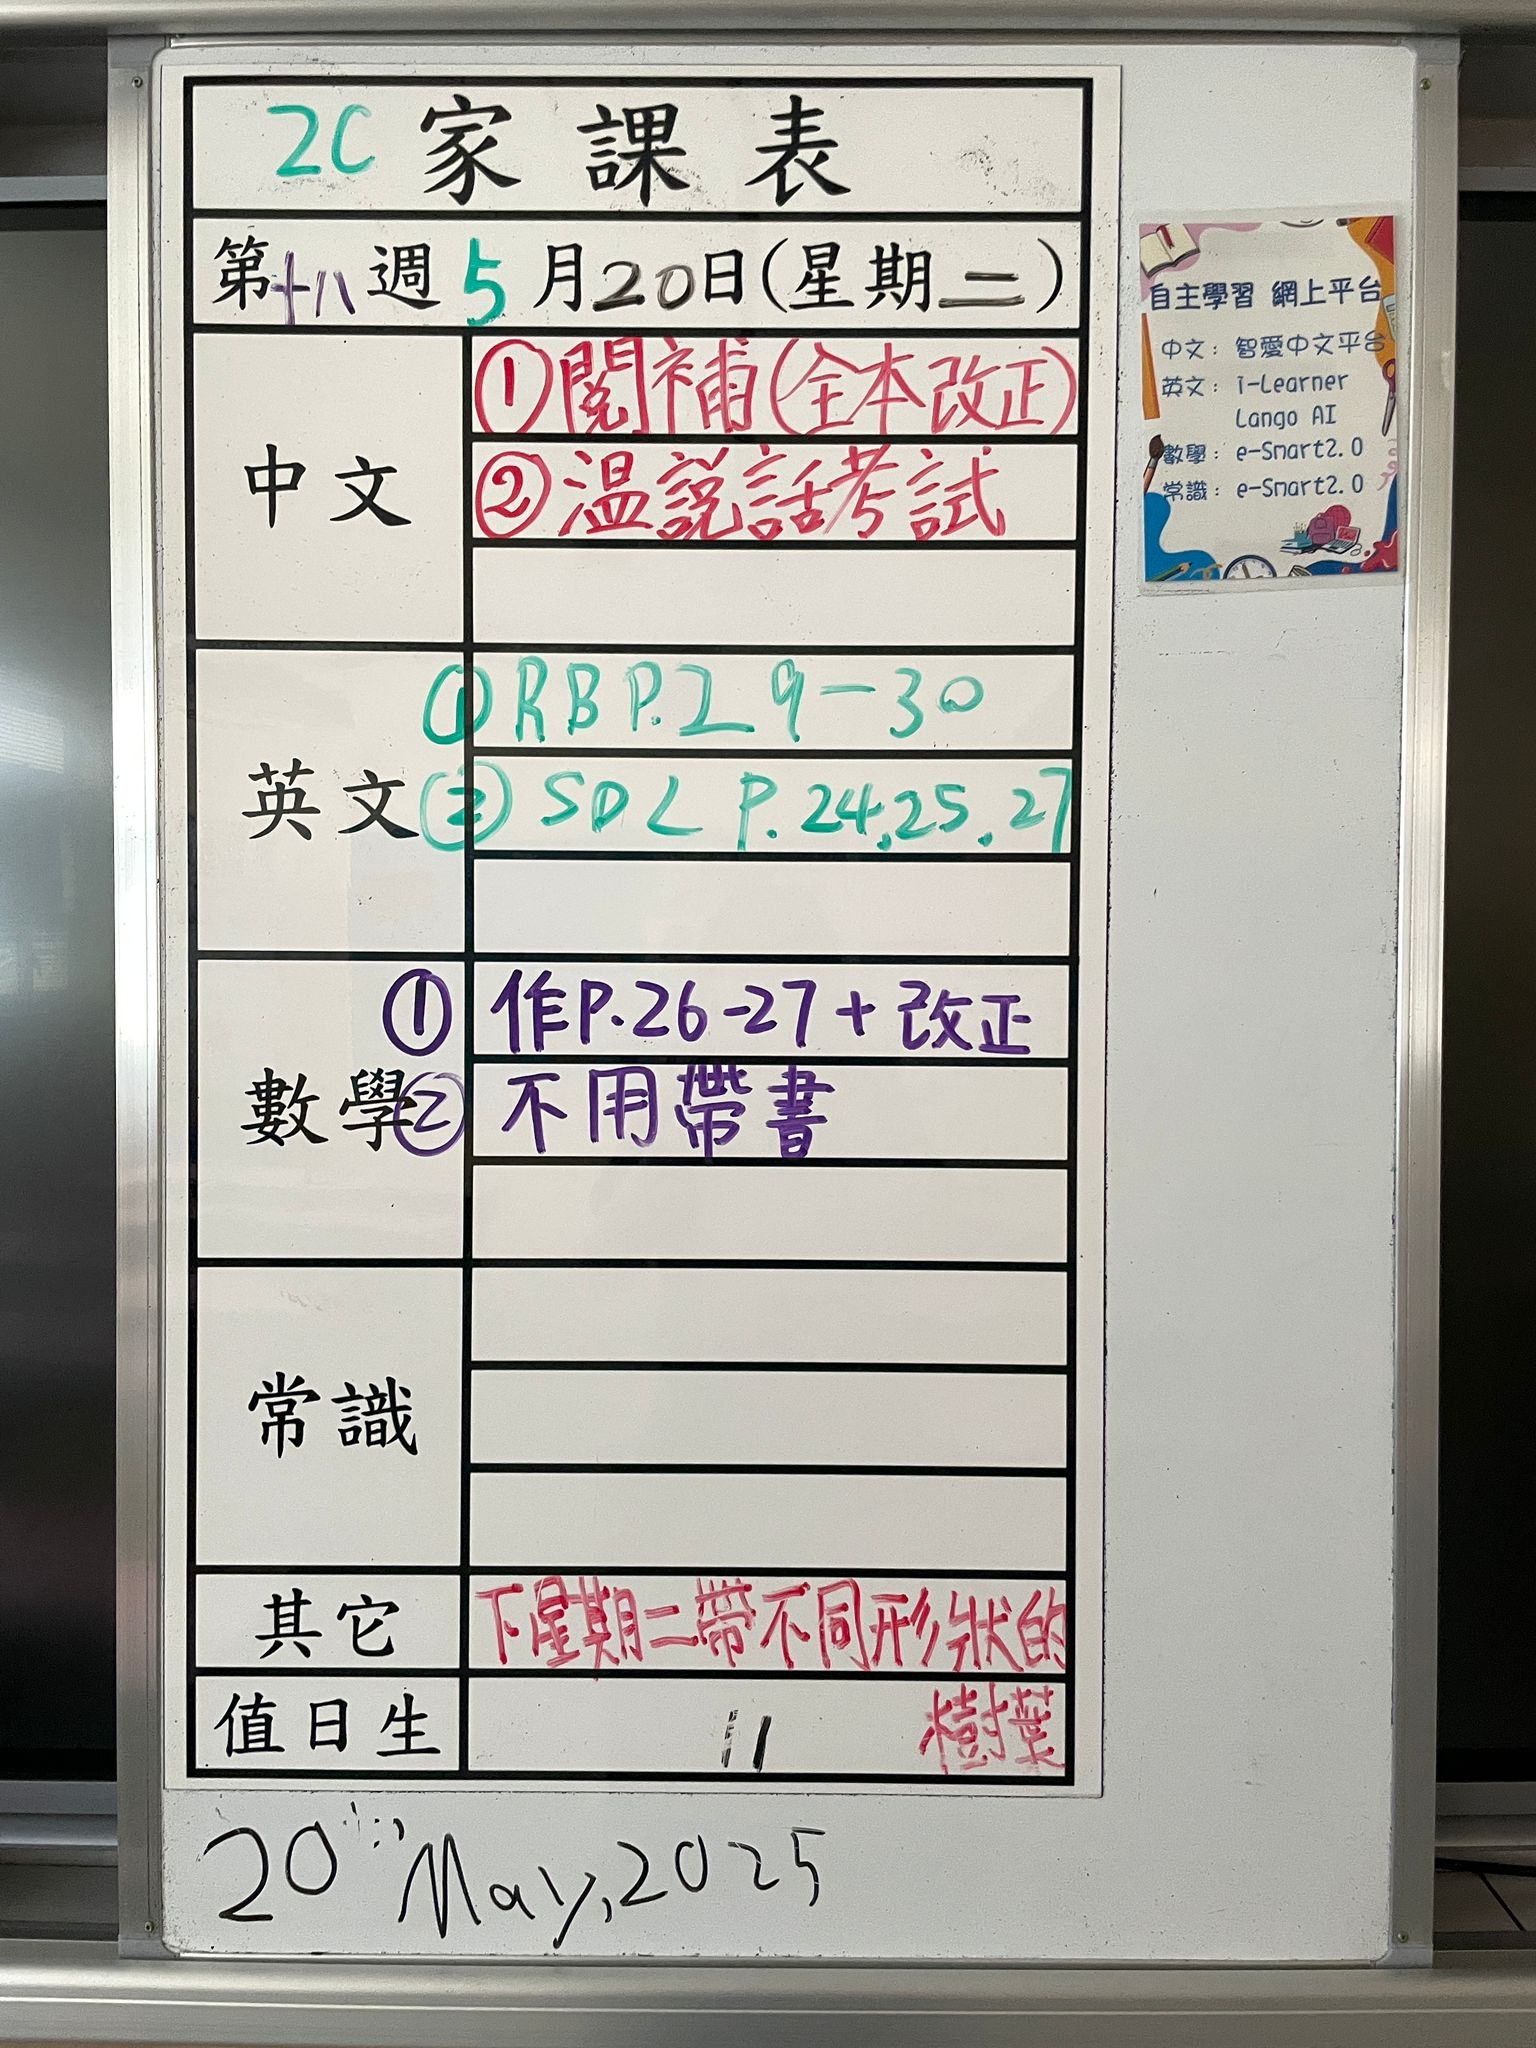 2C 家課表
第十八週 5月20日(星期二)
中文
①閱補(全本改正)
②温説話考試
英文
①RB P.29-30
②SDL P.24,25,27
數學
①作P.26-27+改正
②不用帶書
常識
其它
下星期二帶不同形狀的
樹葉
值日生
11
20 May, 2025
自主學習 網上平台
中文：智愛中文平台
英文：i-Learner
Lango AI
數學：e-Smart2.0
常識：e-Smart2.0